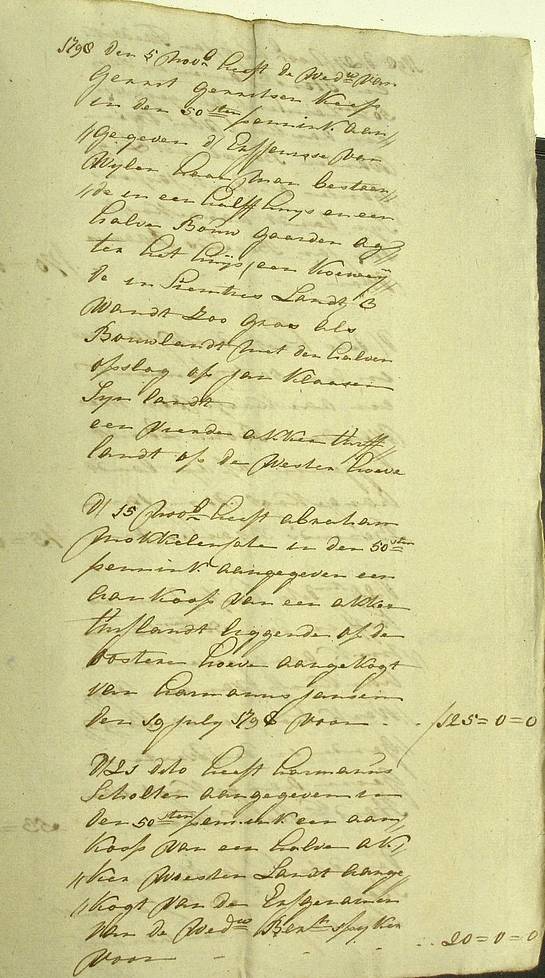 1798 den 5 Novb heeft de Wedwe van
Gerrit Gerritsen Keep
in den 50sten pennink aan//
//gegeven d' Erffenisse van
Wylen haar man bestaan//
//de in een halff huys en een
halve Bouw gaerden ag//
ter het huijs, een Koeweij
de in Landt 3
Wandt Zoo groes als
Bouwlandt met den halven
opslag op Jan Klaasen
Syn landt
een vierde akker thyff
landt op de Wester hoeve
D' 15 Novb heeft abraham
in den 50sten
pennink aangegeven een
aankoop van een akker
thyflandt liggende op de
Ooster hoeve aangekogt
van harmanus Jansen
den 19 July 1798 voor . . f125=0=0
D' 21 dito heeft harmanus
Scholten aangegeven in
den 50sten pennink een aan//
koop van een halve ak//
//ker Woesten Landt aange//
//kogt van de Erfgenamen
van de Wedwe Bert Spyker
voor - - - . . 20=0=0